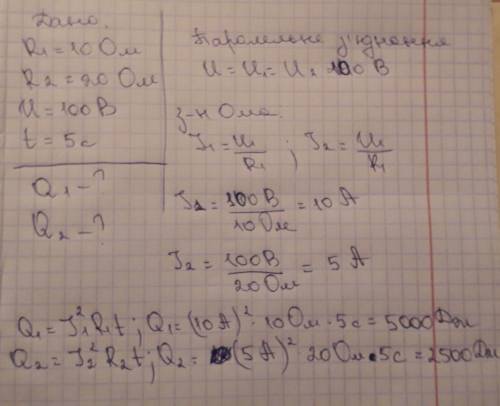 Дано:
R₁ = 10 Ом
R₂ = 20 Ом
U = 100 В
t = 5 с
Q₁ – ?
Q₂ – ?
Паралельне з'єднання
U = U₁ = U₂ 100 В
З-н Ома:
I₁ = U₁/R₁ ; I₂ = U₁/R₁
I₂ = 100 В/10 Ом = 10 А
I₂ = 100 В/20 Ом = 5 А
Q₁ = I₁² R₁ t ; Q₁ = (10 А)² · 10 Ом · 5 с = 5000 Дж
Q₂ = I₂² R₂ t ; Q₂ = (5 А)² · 20 Ом · 5 с = 2500 Дж